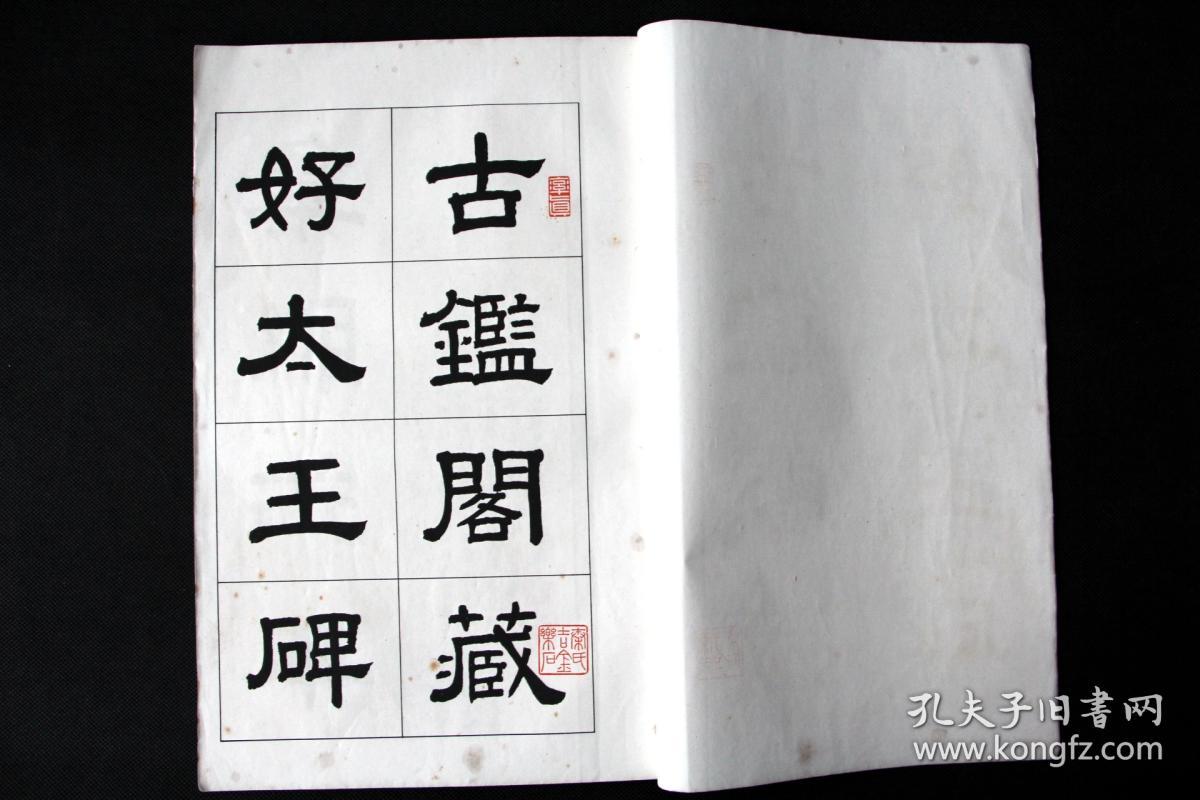 古鑑閣藏
好太王碑
秦氏吉金樂石
孔夫子旧書网
www.kongfz.com